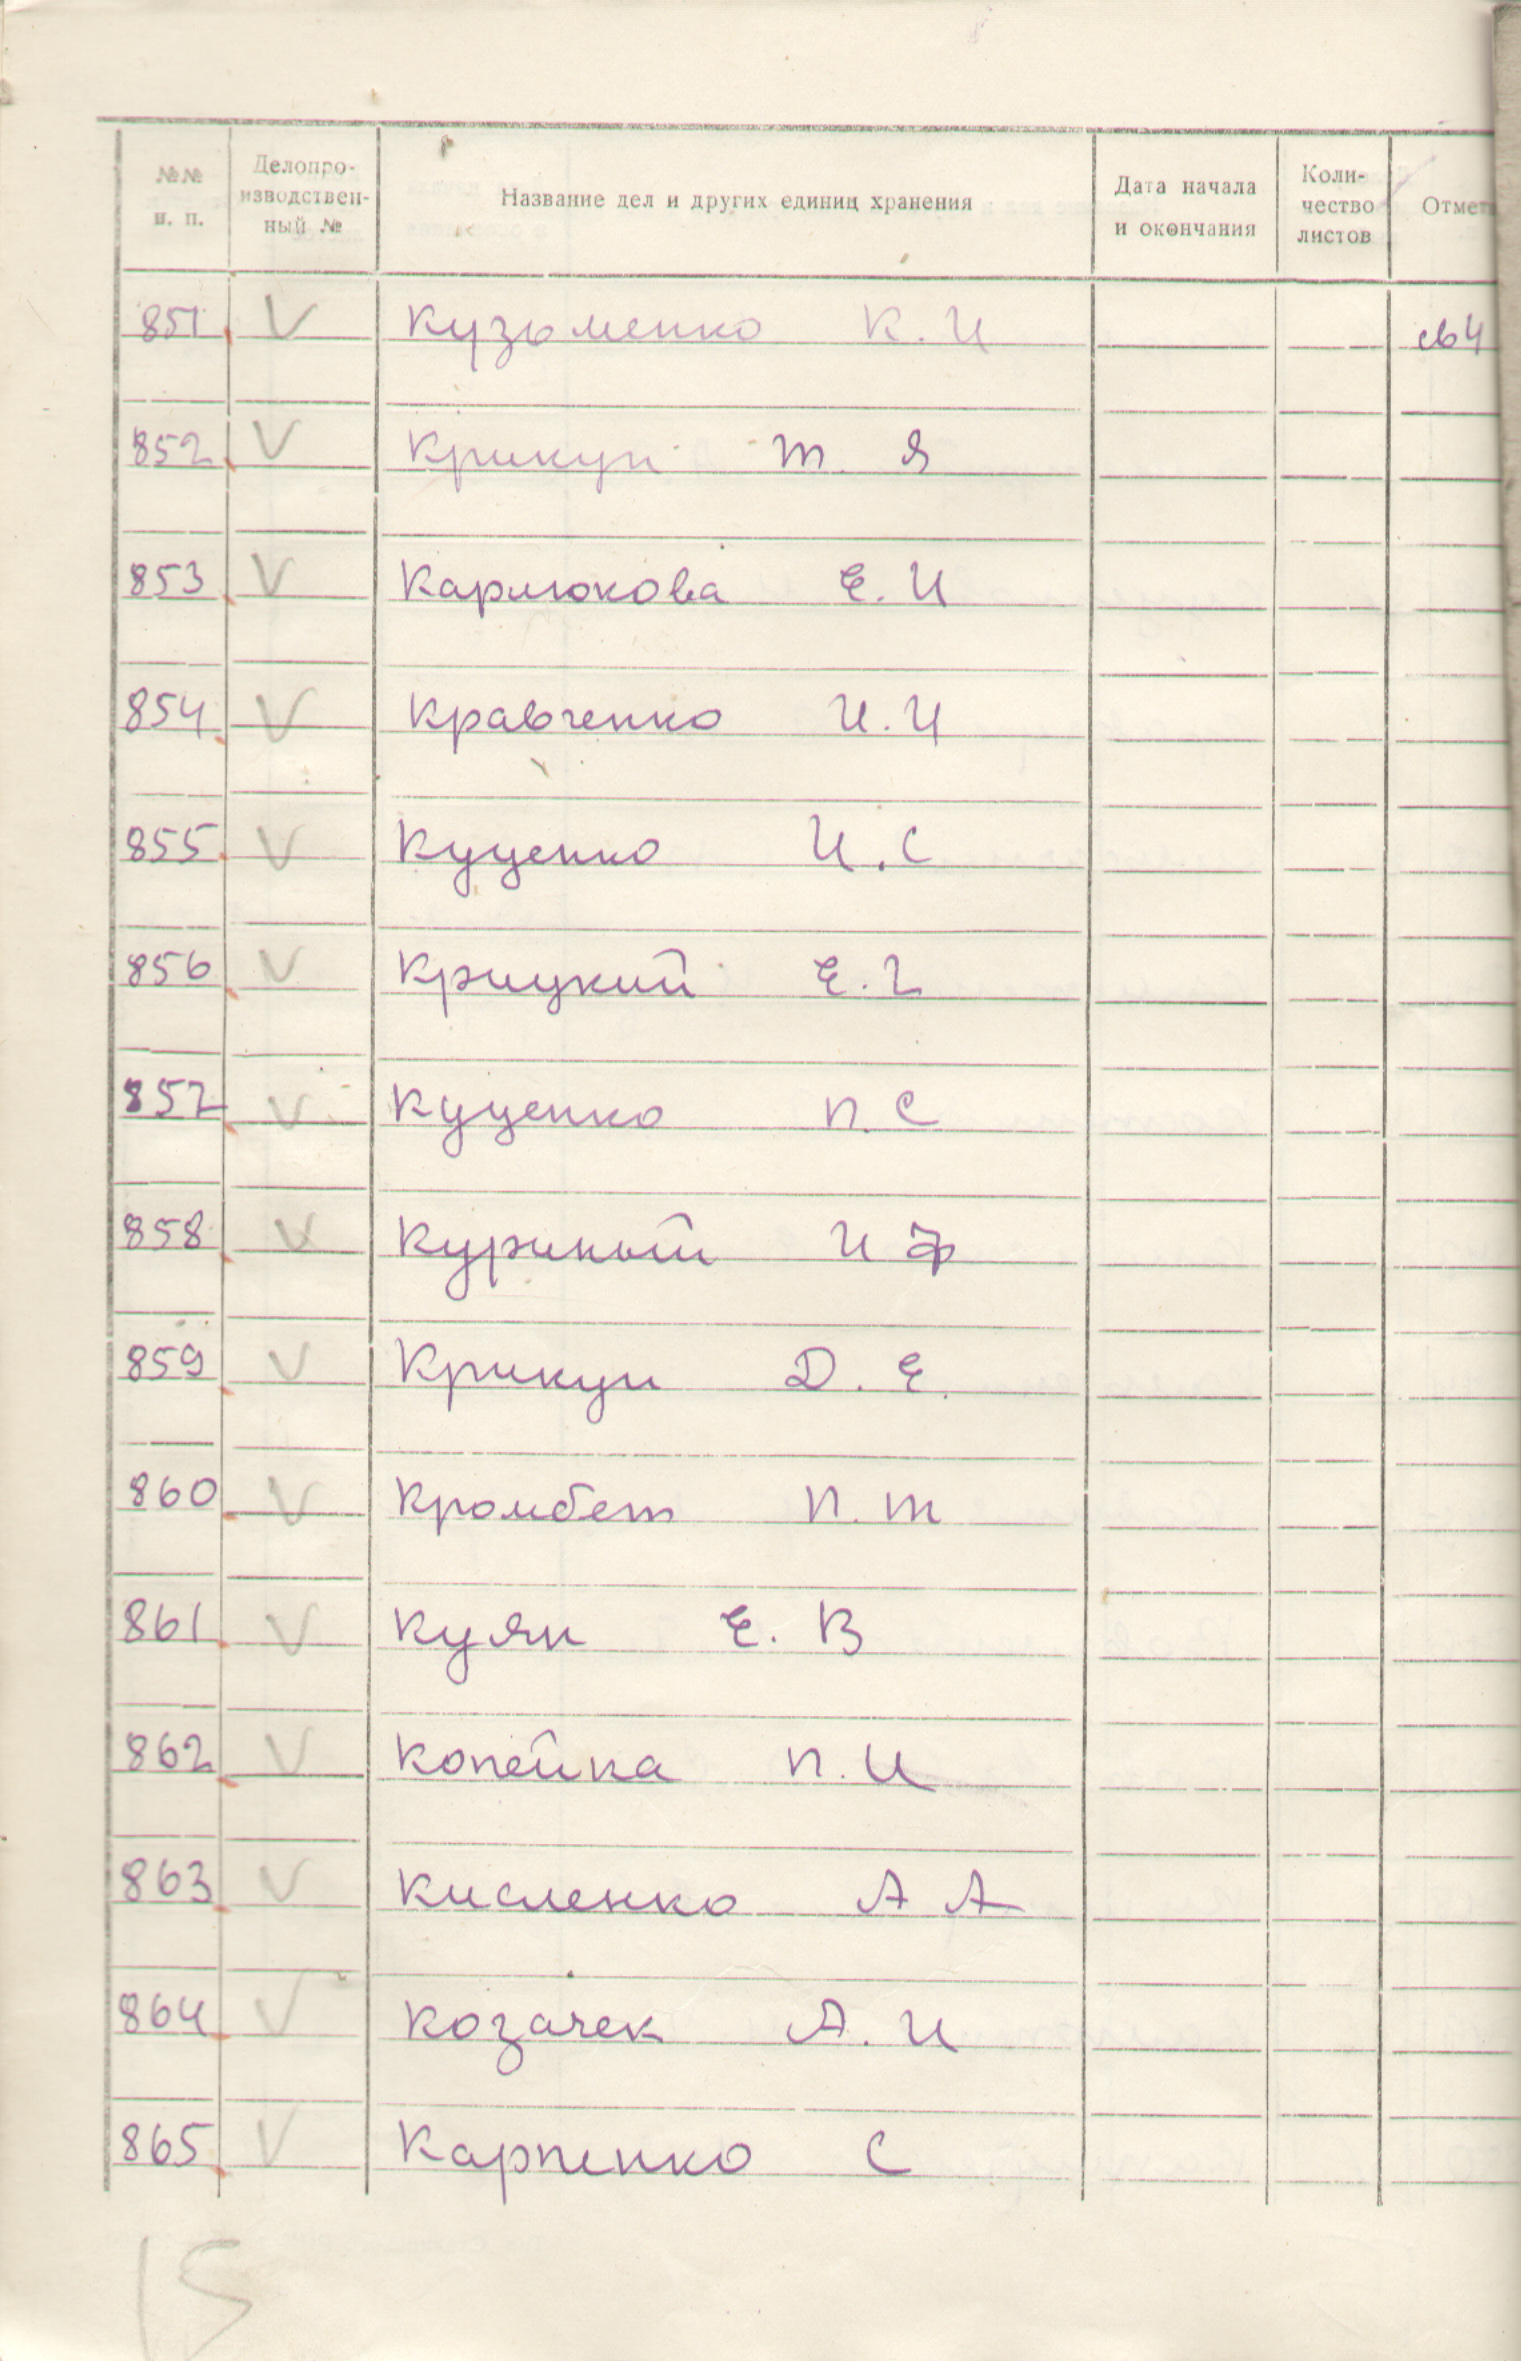 №№ п. п. Делопроизводственный № Название дел и других единиц хранения Дата начала и окончания Количество листов Отмет
851 V Кузьменко К. И
852 V Крикун Т. Я
853 V Карлюкова Е. И
854 V Кравченко И. И
855 V Куценко И. С
856 V Крицкий Е. Г
857 V Куценко П. С
858 V Куриный И Ф
859 V Крикун Д. Е.
860 V Кромбет П. Т
861 V Куян Е. В
862 V Копейка П. И
863 V Кисленко А А
864 V Козачек А. И
865 V Карпенко С
15